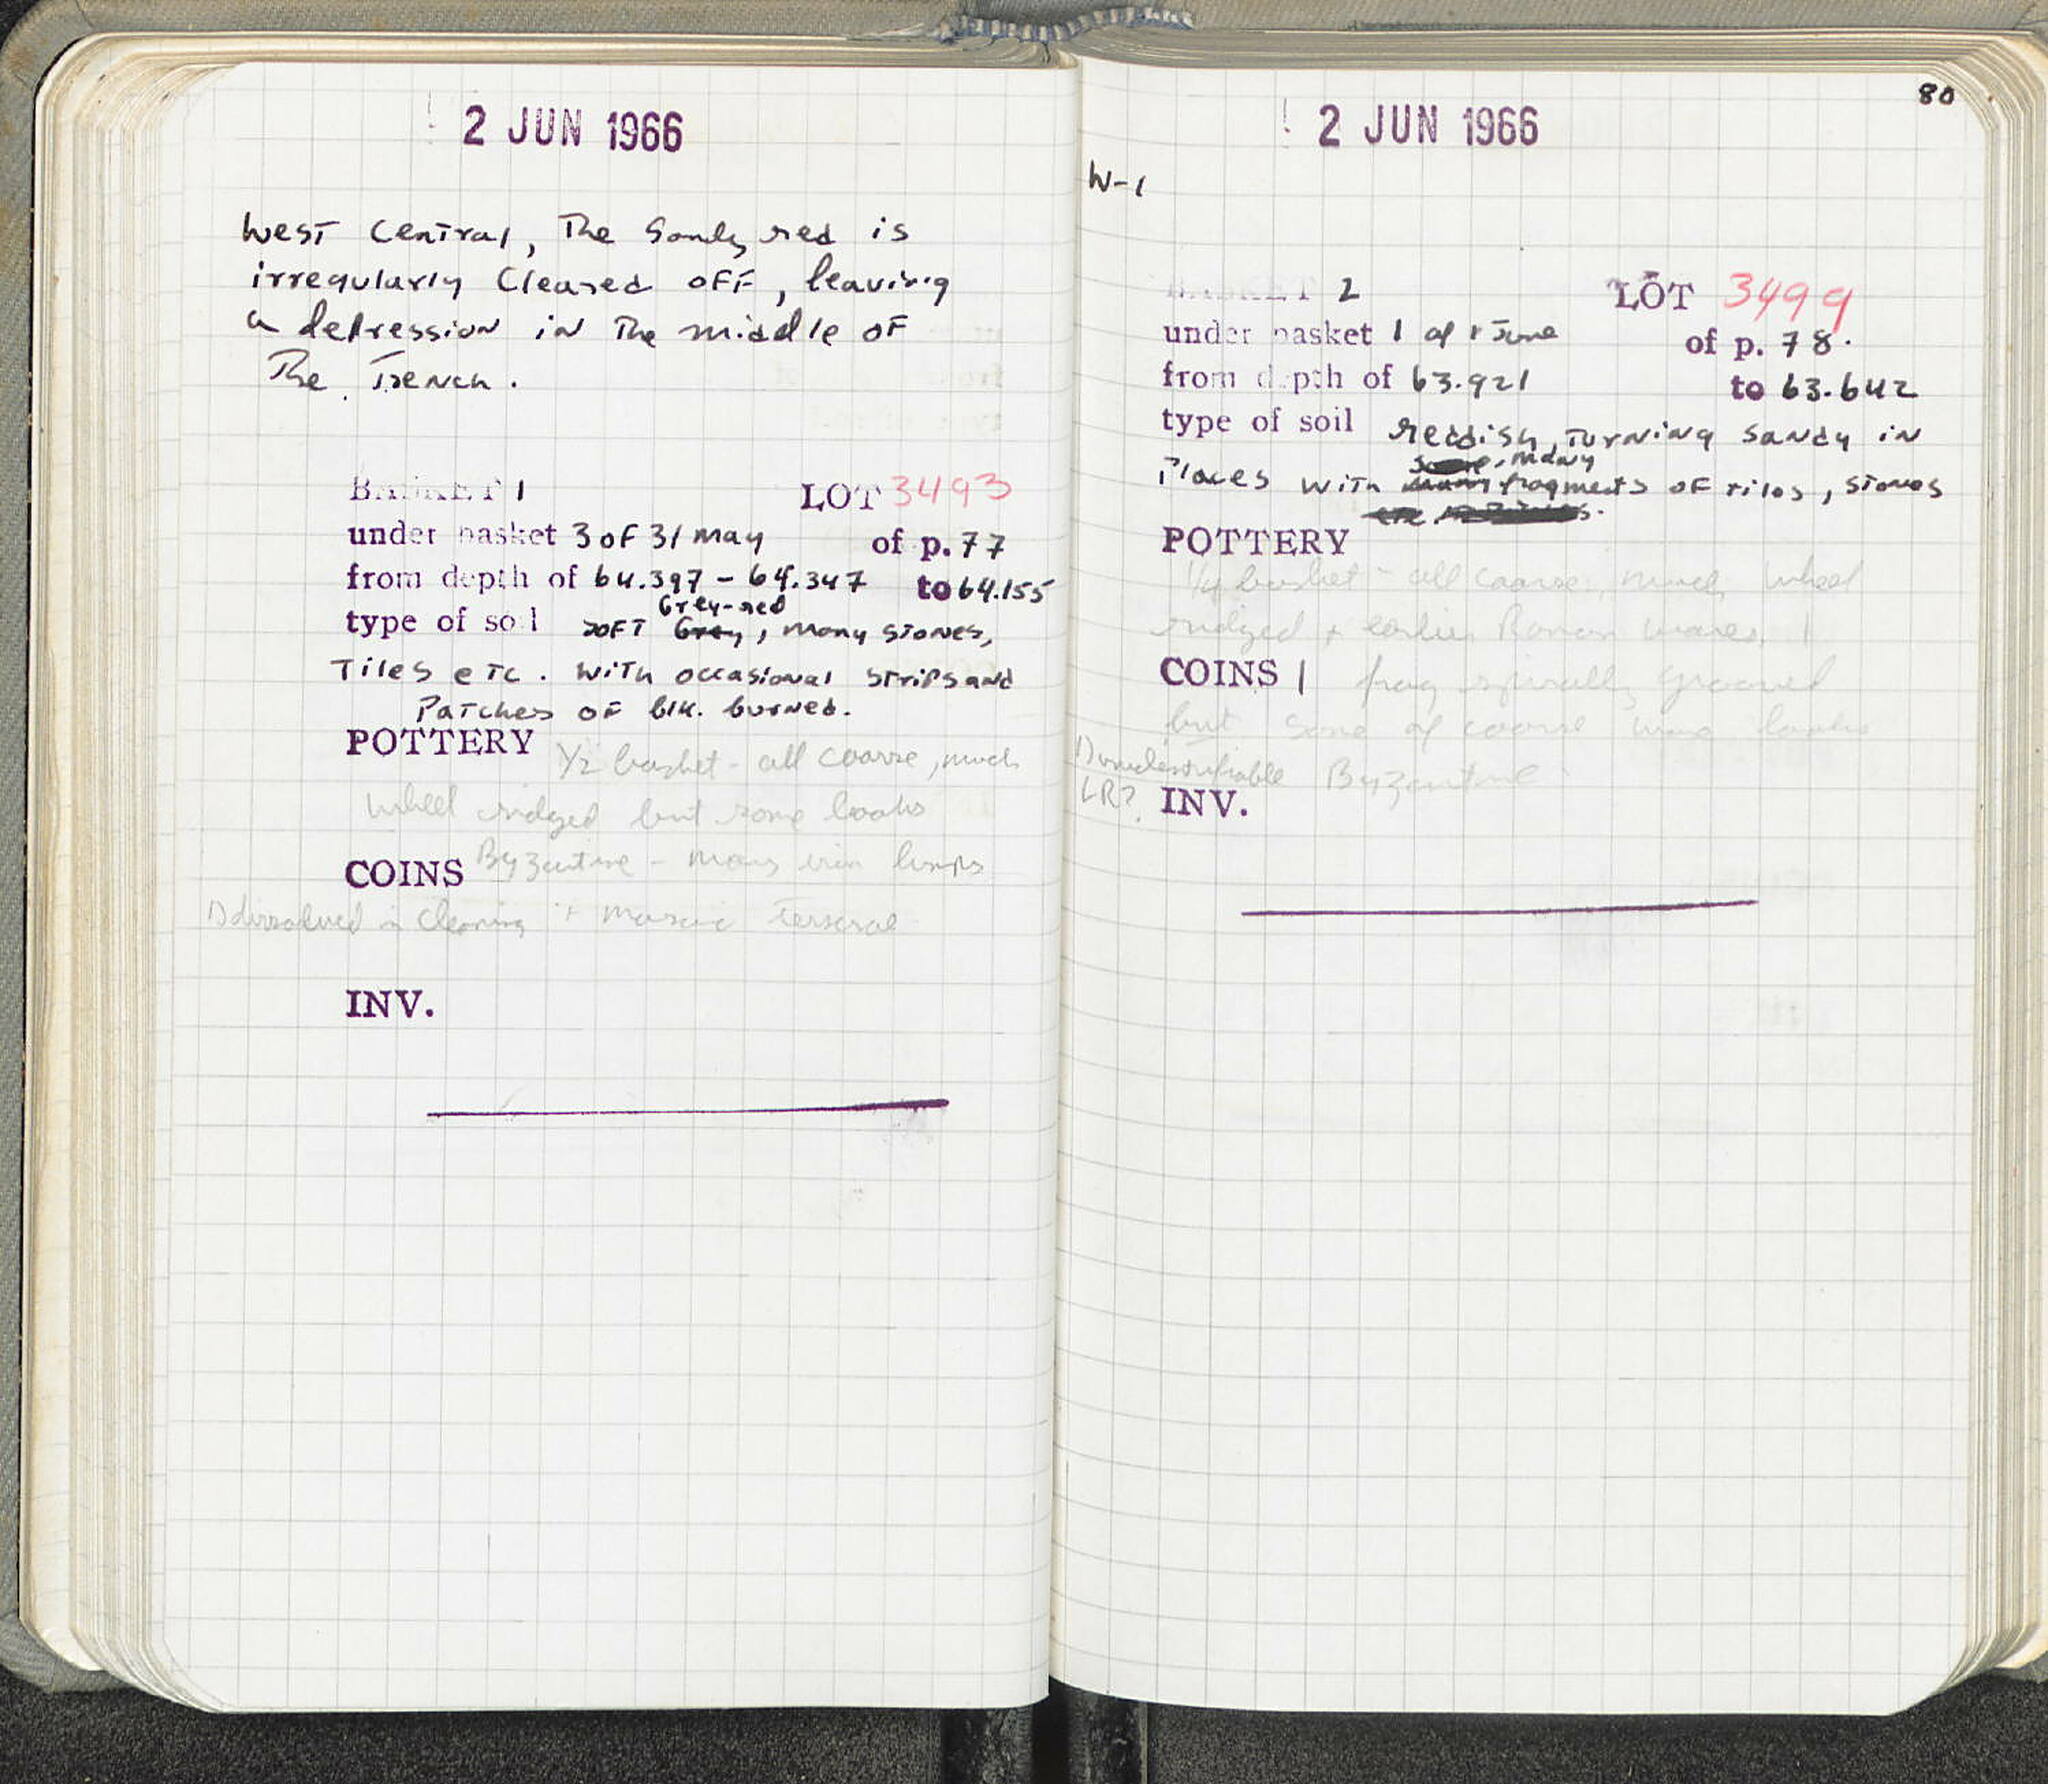 2 JUN 1966
West Central, The Sandy red is
irregularly Cleared off, leaving
a depression in The middle of
The Trench.
BASKET 1 LOT 3493
under basket 3 of 31 May of p. 77
from depth of 64.397 - 64.347 to 64.155
Grey-red
type of soil soft Grey, many stones,
Tiles etc. with occasional strips and
Patches of blk. burned.
POTTERY 1/2 basket - all coarse, much
wheel ridged but some looks
Byzantine - many iron lumps
COINS
1) dissolved in cleaning + mosaic tesserae
INV.
80
2 JUN 1966
W-1
BASKET 2 LOT 3499
under basket 1 of 1 June of p. 78.
from depth of 63.921 to 63.642
type of soil reddish, turning sandy in
many
Places with fragments of tiles, stones
POTTERY
1/4 basket - all coarse, much wheel
ridged + earlier Roman wares. 1
COINS 1 frag spirally grooved
but some of coarse ware looks
1) unidentifiable Byzantine
LR? INV.